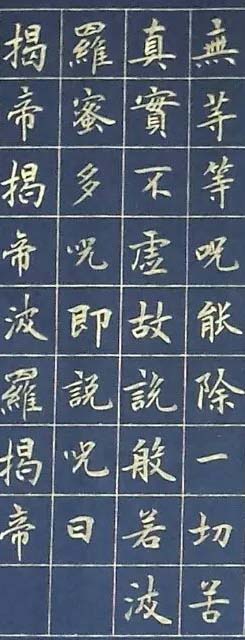 無等等呪能除一切苦
真實不虛故說般若波
羅蜜多呪即說呪曰
揭帝揭帝波羅揭帝